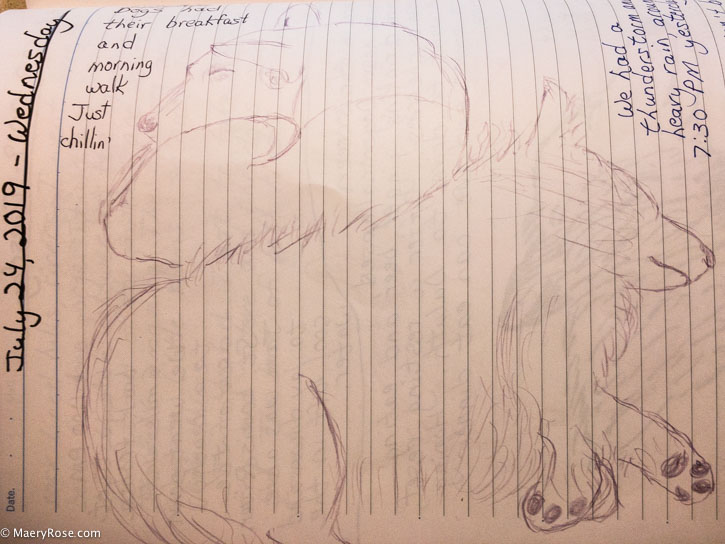 July 24, 2019 - Wednesday
Dogs had
their breakfast
and
morning
walk
Just
chillin'
We had a
thunderstorm
heavy rain
7:30 PM
Date.
© MaeryRose.com